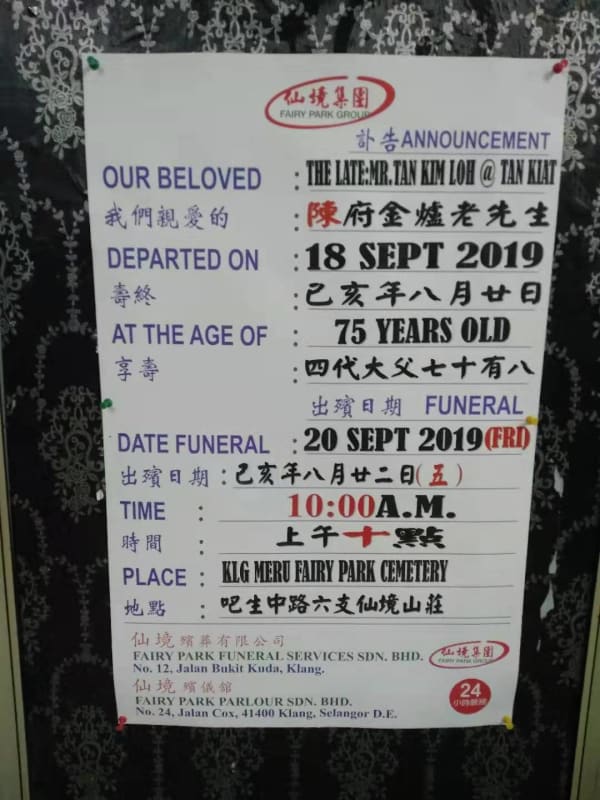 仙境集團
FAIRY PARK GROUP
訃告 ANNOUNCEMENT
OUR BELOVED : THE LATE:MR.TAN KIM LOH @ TAN KIAT
我們親愛的 : 陳府金爐老先生
DEPARTED ON : 18 SEPT 2019
壽終 : 己亥年八月廿日
AT THE AGE OF : 75 YEARS OLD
享壽 : 四代大父七十有八
出殯日期 FUNERAL
DATE FUNERAL : 20 SEPT 2019(FRI)
出殯日期 : 己亥年八月廿二日(五)
TIME : 10:00A.M.
時間 : 上午十點
PLACE : KLG MERU FAIRY PARK CEMETERY
地點 : 吧生中路六支仙境山莊
仙境殯葬有限公司
FAIRY PARK FUNERAL SERVICES SDN. BHD.
No. 12, Jalan Bukit Kuda, Klang.
仙境集團
FAIRY PARK GROUP
仙境殯儀館
FAIRY PARK PARLOUR SDN. BHD.
No. 24, Jalan Cox, 41400 Klang, Selangor D.E.
24
小時服務